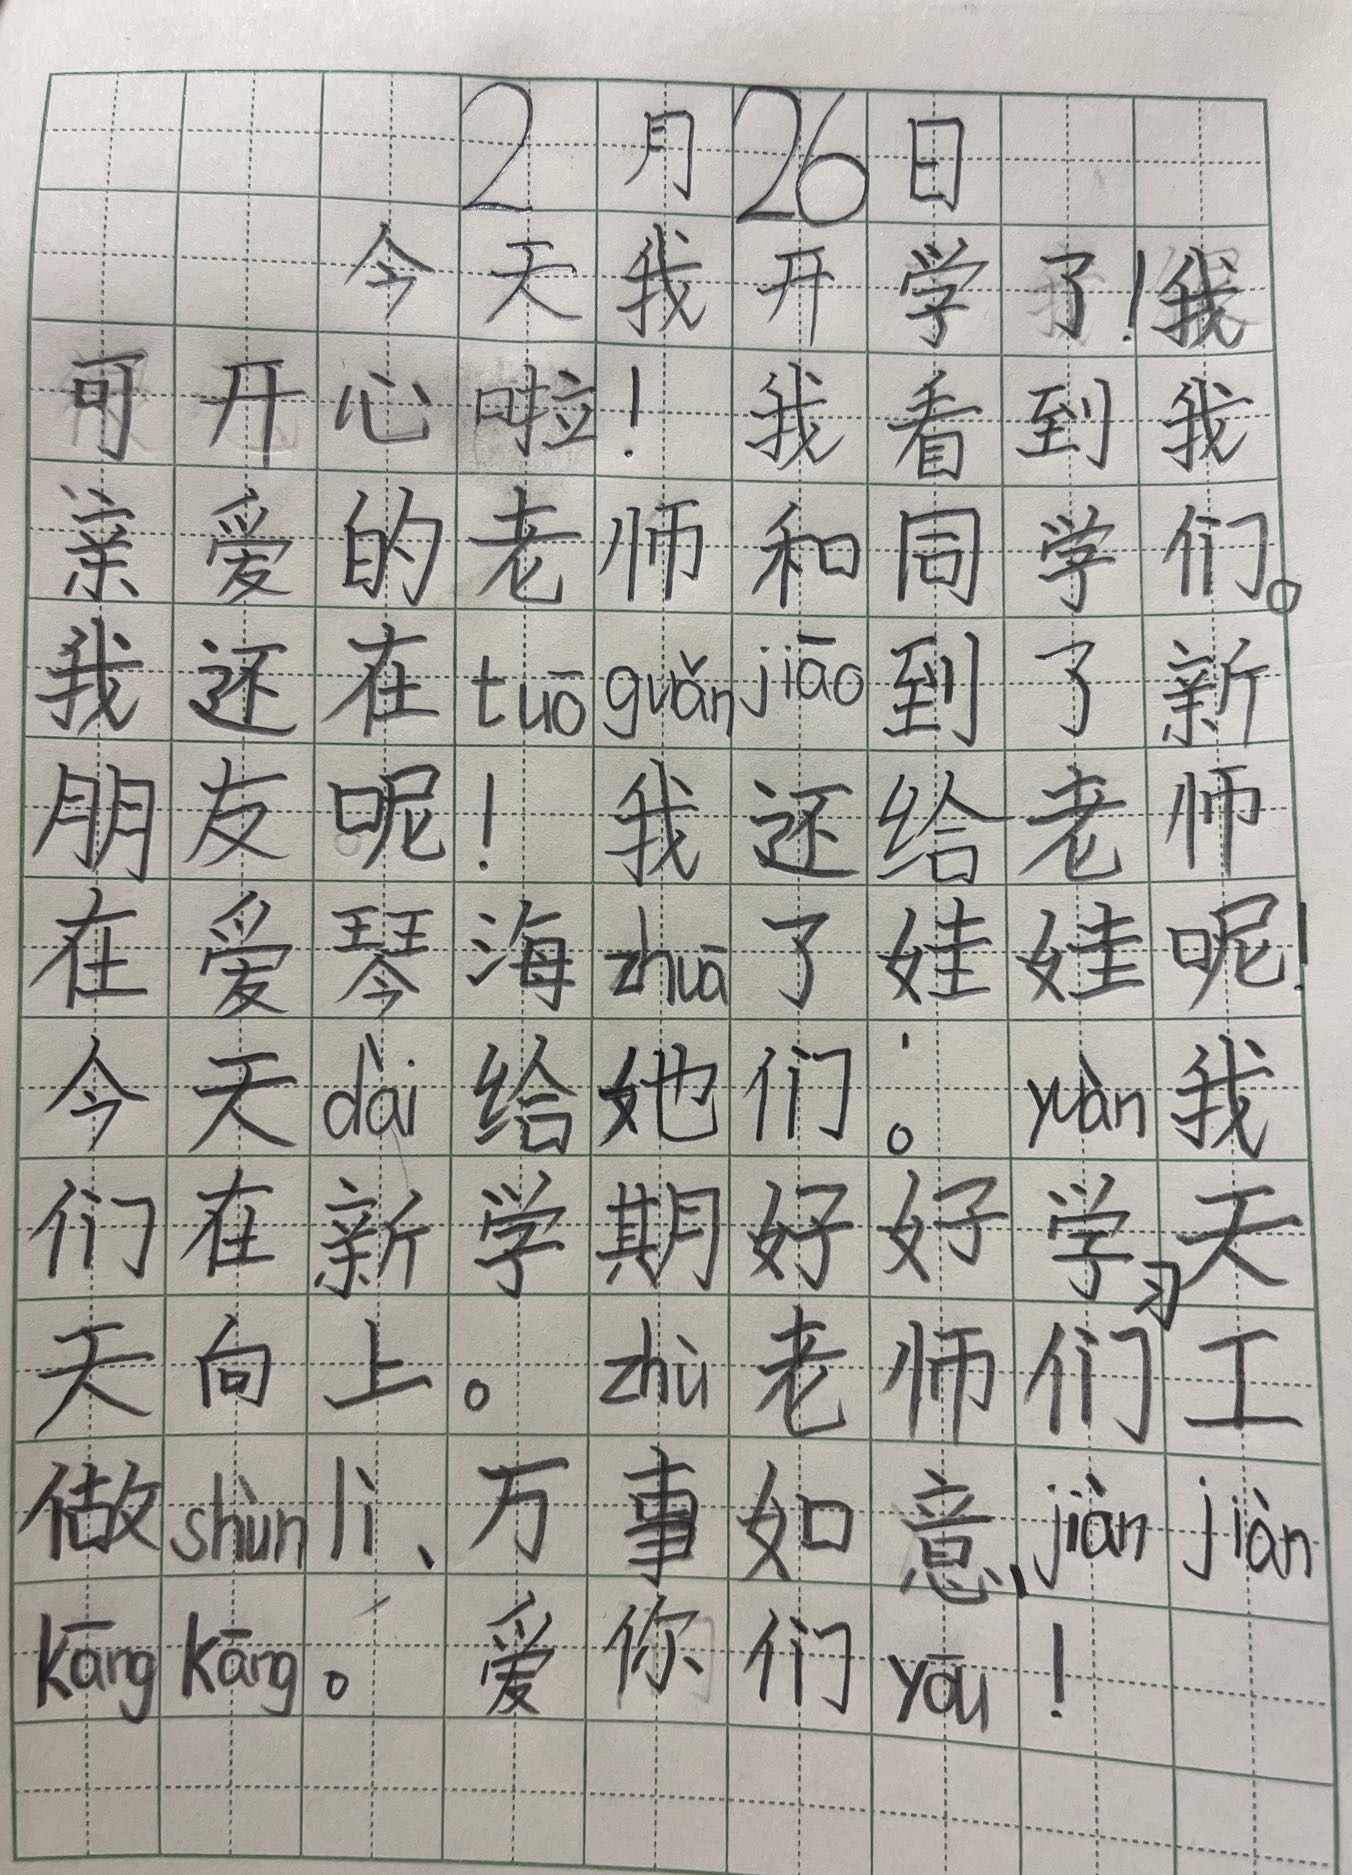 2月26日
今天我开学了!我
可开心啦!我看到我
亲爱的老师和同学们。
我还在tuōguǎnjiāo到了新
朋友呢!我还给老师
在爱琴海zhuā了娃娃呢!
今天dài给她们。yuàn我
们在新学期好好学习天
天向上。zhù老师们工
做shùnlì、万事如意、jiànjiàn
kāngkāng。爱你们yōu!